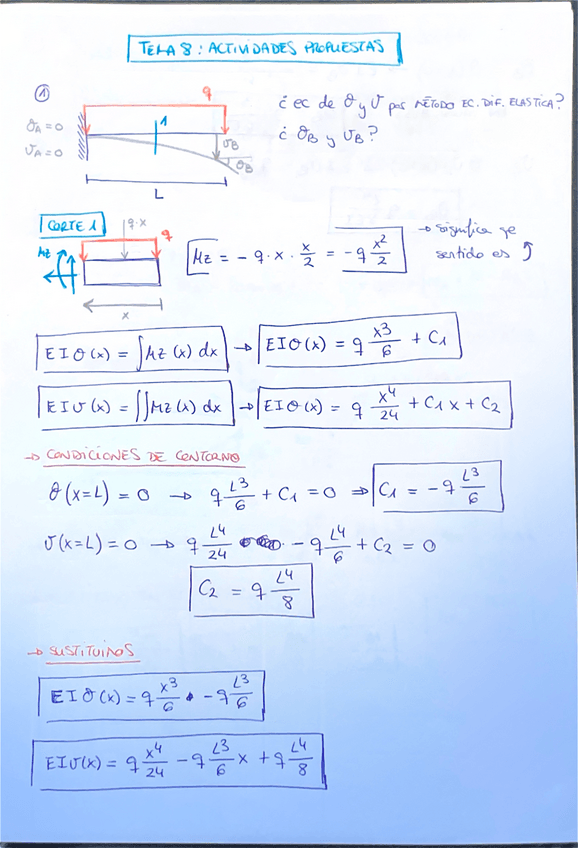 TEMA 8: ACTIVIDADES PROPUESTAS
①
q
¿ ec de θ y v por MÉTODO EC. DIF. ELASTICA?
¿ θB y vB?
θA = 0
vA = 0
1
vB
θB
L
CORTE 1
q·x
q
Mz
x
Mz = - q · x · x/2 = - q x²/2
→ significa qe sentido es
EIθ(x) = ∫Mz (x) dx → EIθ(x) = q x³/6 + C1
EIv(x) = ∬Mz(x) dx → EIθ(x) = q x⁴/24 + C1 x + C2
→ CONDICIONES DE CONTORNO
θ(x=L) = 0 → q L³/6 + C1 = 0 ⇒ C1 = - q L³/6
v(x=L) = 0 → q L⁴/24 - q L⁴/6 + C2 = 0
C2 = q L⁴/8
→ SUSTITUIMOS
EIθ(x) = q x³/6 - q L³/6
EIv(x) = q x⁴/24 - q L³/6 x + q L⁴/8